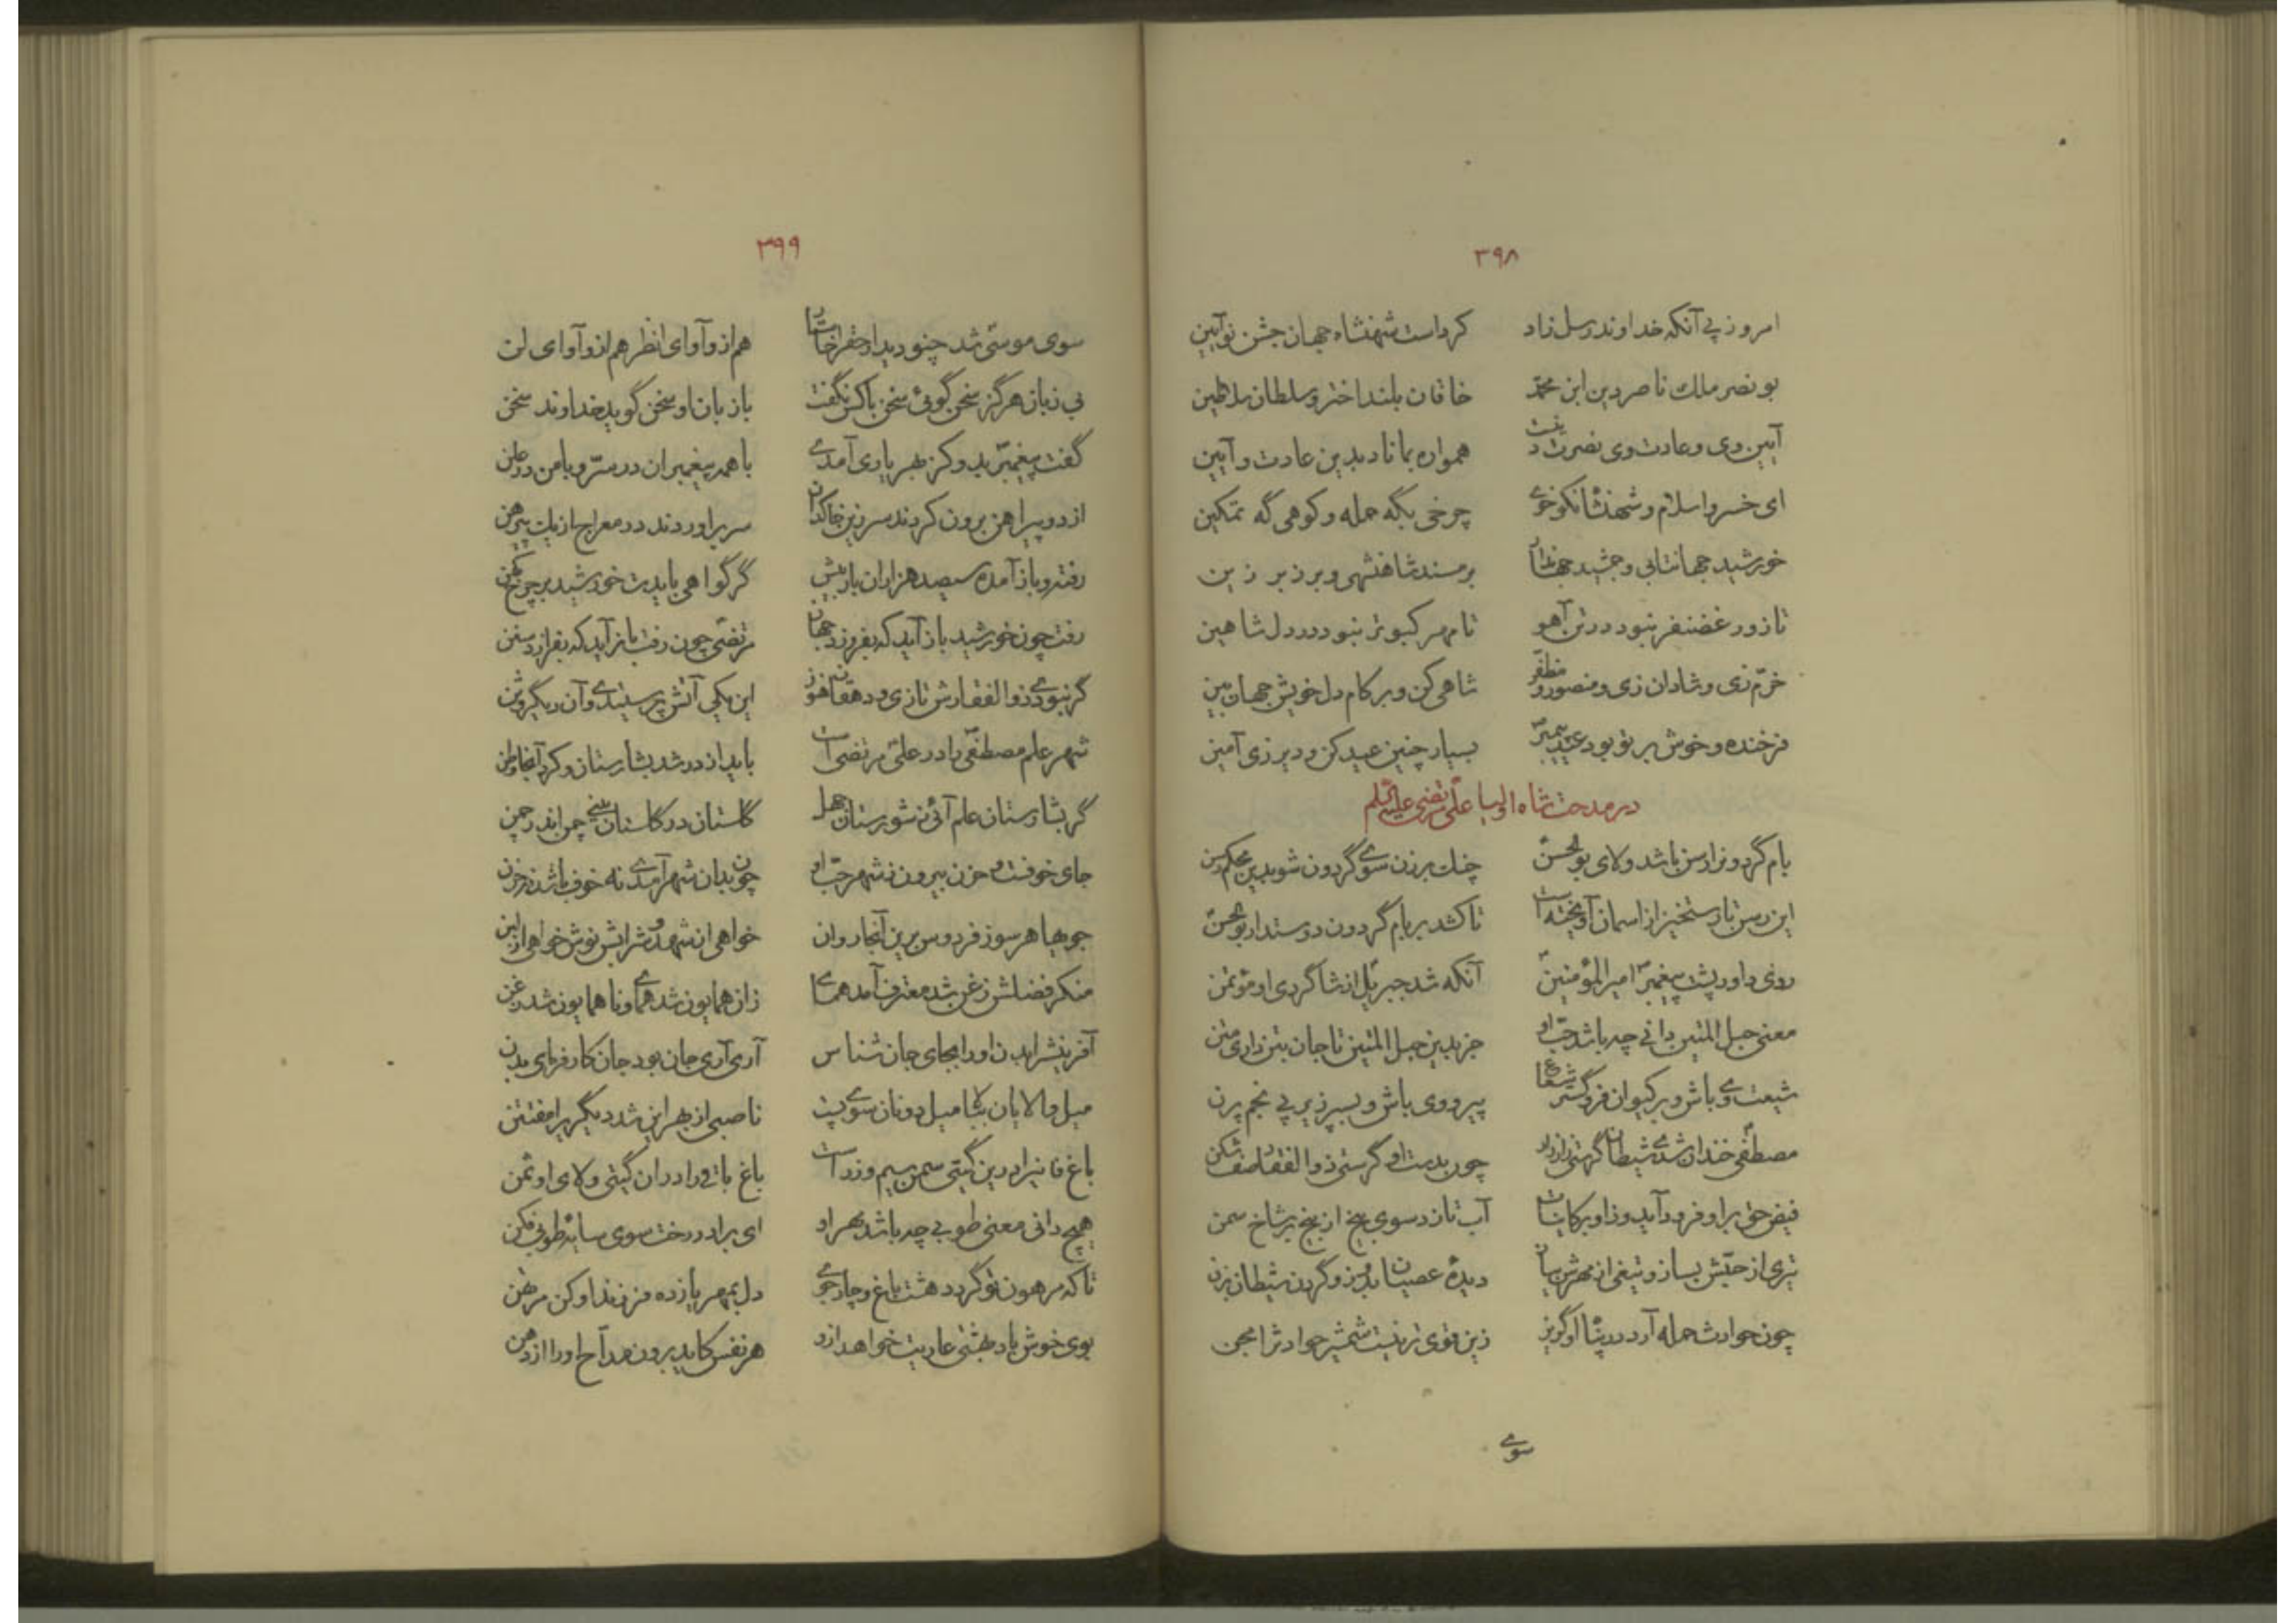 ۳۹۸
امروز پی آنکه خداوند رسل زاد کرداست شهنشاه جهان جشن نوآیین
بونصر ملک ناصر دین ابن محمّد خاقان بلند اختر و سلطان سلاطین
آیین وی و عادت وی نصرت دینست همواره بماناد بدین عادت و آیین
ای خسرو اسلام و شهنشاه نکوخوی چرخی بگه حمله و کوهی گه تمکین
خورشید جهانتابی و جمشید جهاندار بر مسند شاهنشهی و بر زبر زین
تا زور غضنفر نبود در تن آهو تا مهر کبوتر نبود در دل شاهین
خرّم زی و شادان زی و منصور و مظفّر شاهی کن و بر کام دل خویش جهان بین
فرخنده و خوش بر تو بود عید پیمبر بسیار چنین عید کن و دیر زی آمین
در مدحت شاه اولیا علی مرتضی علیه السّلام
بام گردون را رسن باشد ولای بوالحسن چنک برزن سوی گردون شو بدین محکم رسن
این رسن تا رستخیز از اسمان آویخته است تا کشد بر بام گردون دوستدار بوالحسن
روی داور پشت پیغمبر امیرالمؤمنین آنکه شد جبریل از شاگردی او مؤتمن
معنی حبل المتین دانی چه باشد حبّ او جز بدین حبل المتین تا جان بتن داری متن
شیعت وی باش و بر کیوان فرو گستر شعاع پیرو وی باش و بسپر زیر پی نجم پرن
مصطفی خندان شدی شیطان گرستی زار زار چون بدست او گرستی ذوالفقار صف شکن
فیض حق بر او فرود آید وز او بر کاینات آب تازد سوی بیخ از بیخ بر شاخ سمن
تیری از حبّش بساز و تیغی از مهرش بسای دیدهٔ عصیان بدوز و گردن شیطان بزن
چون حوادث حمله آرد در پناه او گریز زین قوی تر نیست شمشیر حوادث را مجن
سوی
۳۹۹
سوی موسی شد چنو دیدار حق را خواستار هم ازو آوای انظر هم ازو آوای لن
بی زبان هرگز سخن گوئی سخن با کس نگفت با زبان او سخن گوید خداوند سخن
گفت پیغمبر بدو کز بهر یاری آمدی با همه پیغمبران در سرّ و با من در علن
از دو پیراهن برون کردند سر زین خاکدان سر برآوردند در معراج از یک پیرهن
رفته و باز آمده سیصد هزاران بار بیش گر گواهی بایدت خورشید بر چرخ کهن
رفت چون خورشید باز آید که بفروزد جهان مرتضی چون رفت باز آید که بفرازد سنن
گر نبودی ذوالفقارش تازی و دهقان هنوز این یکی آتش پرستیدی و آن دیگر وثن
شهر علم مصطفی را در علی مرتضی است باید از در شد بشارستان و کرد آنجا وطن
گر بشارستان علم آئی نه شورستان جهل گلستان در گلستان بینی چمن اندر چمن
جای خوفست و حزن بیرون ز شهر حبّ او چون بدان شهر آمدی نه خوف باشد نه حزن
جویها هر سو ز فردوس برین آنجا روان خواهی از شهد و شرابش نوش خواهی از لبن
منکر فضلش زغن شد معترف آمد همای زان همایون شد همای و ناهمایون شد زغن
آفرینش را بدن او را بجای جان شناس آری آری جان بود جان کارفرمای بدن
میل والایان بالا میل دونان سوی پست ناصبی از بهر این شد دیگری را مفتتن
باغ فانی را درین گیتی سمن سیم و زر است باغ باقی را در ان گیتی ولای او ثمن
هیچ دانی معنی طوبی چه باشد مهر او ای برادر رخت سوی سایهٔ طوبی فکن
تا که مرهون تو گردد هشت باغ و چارجوی دل بمهر یازده فرزند او کن مرتهن
بوی خوش باد بهشتی عاریت خواهد ازو هر نفس کاید برون مدّاح او را از دهن